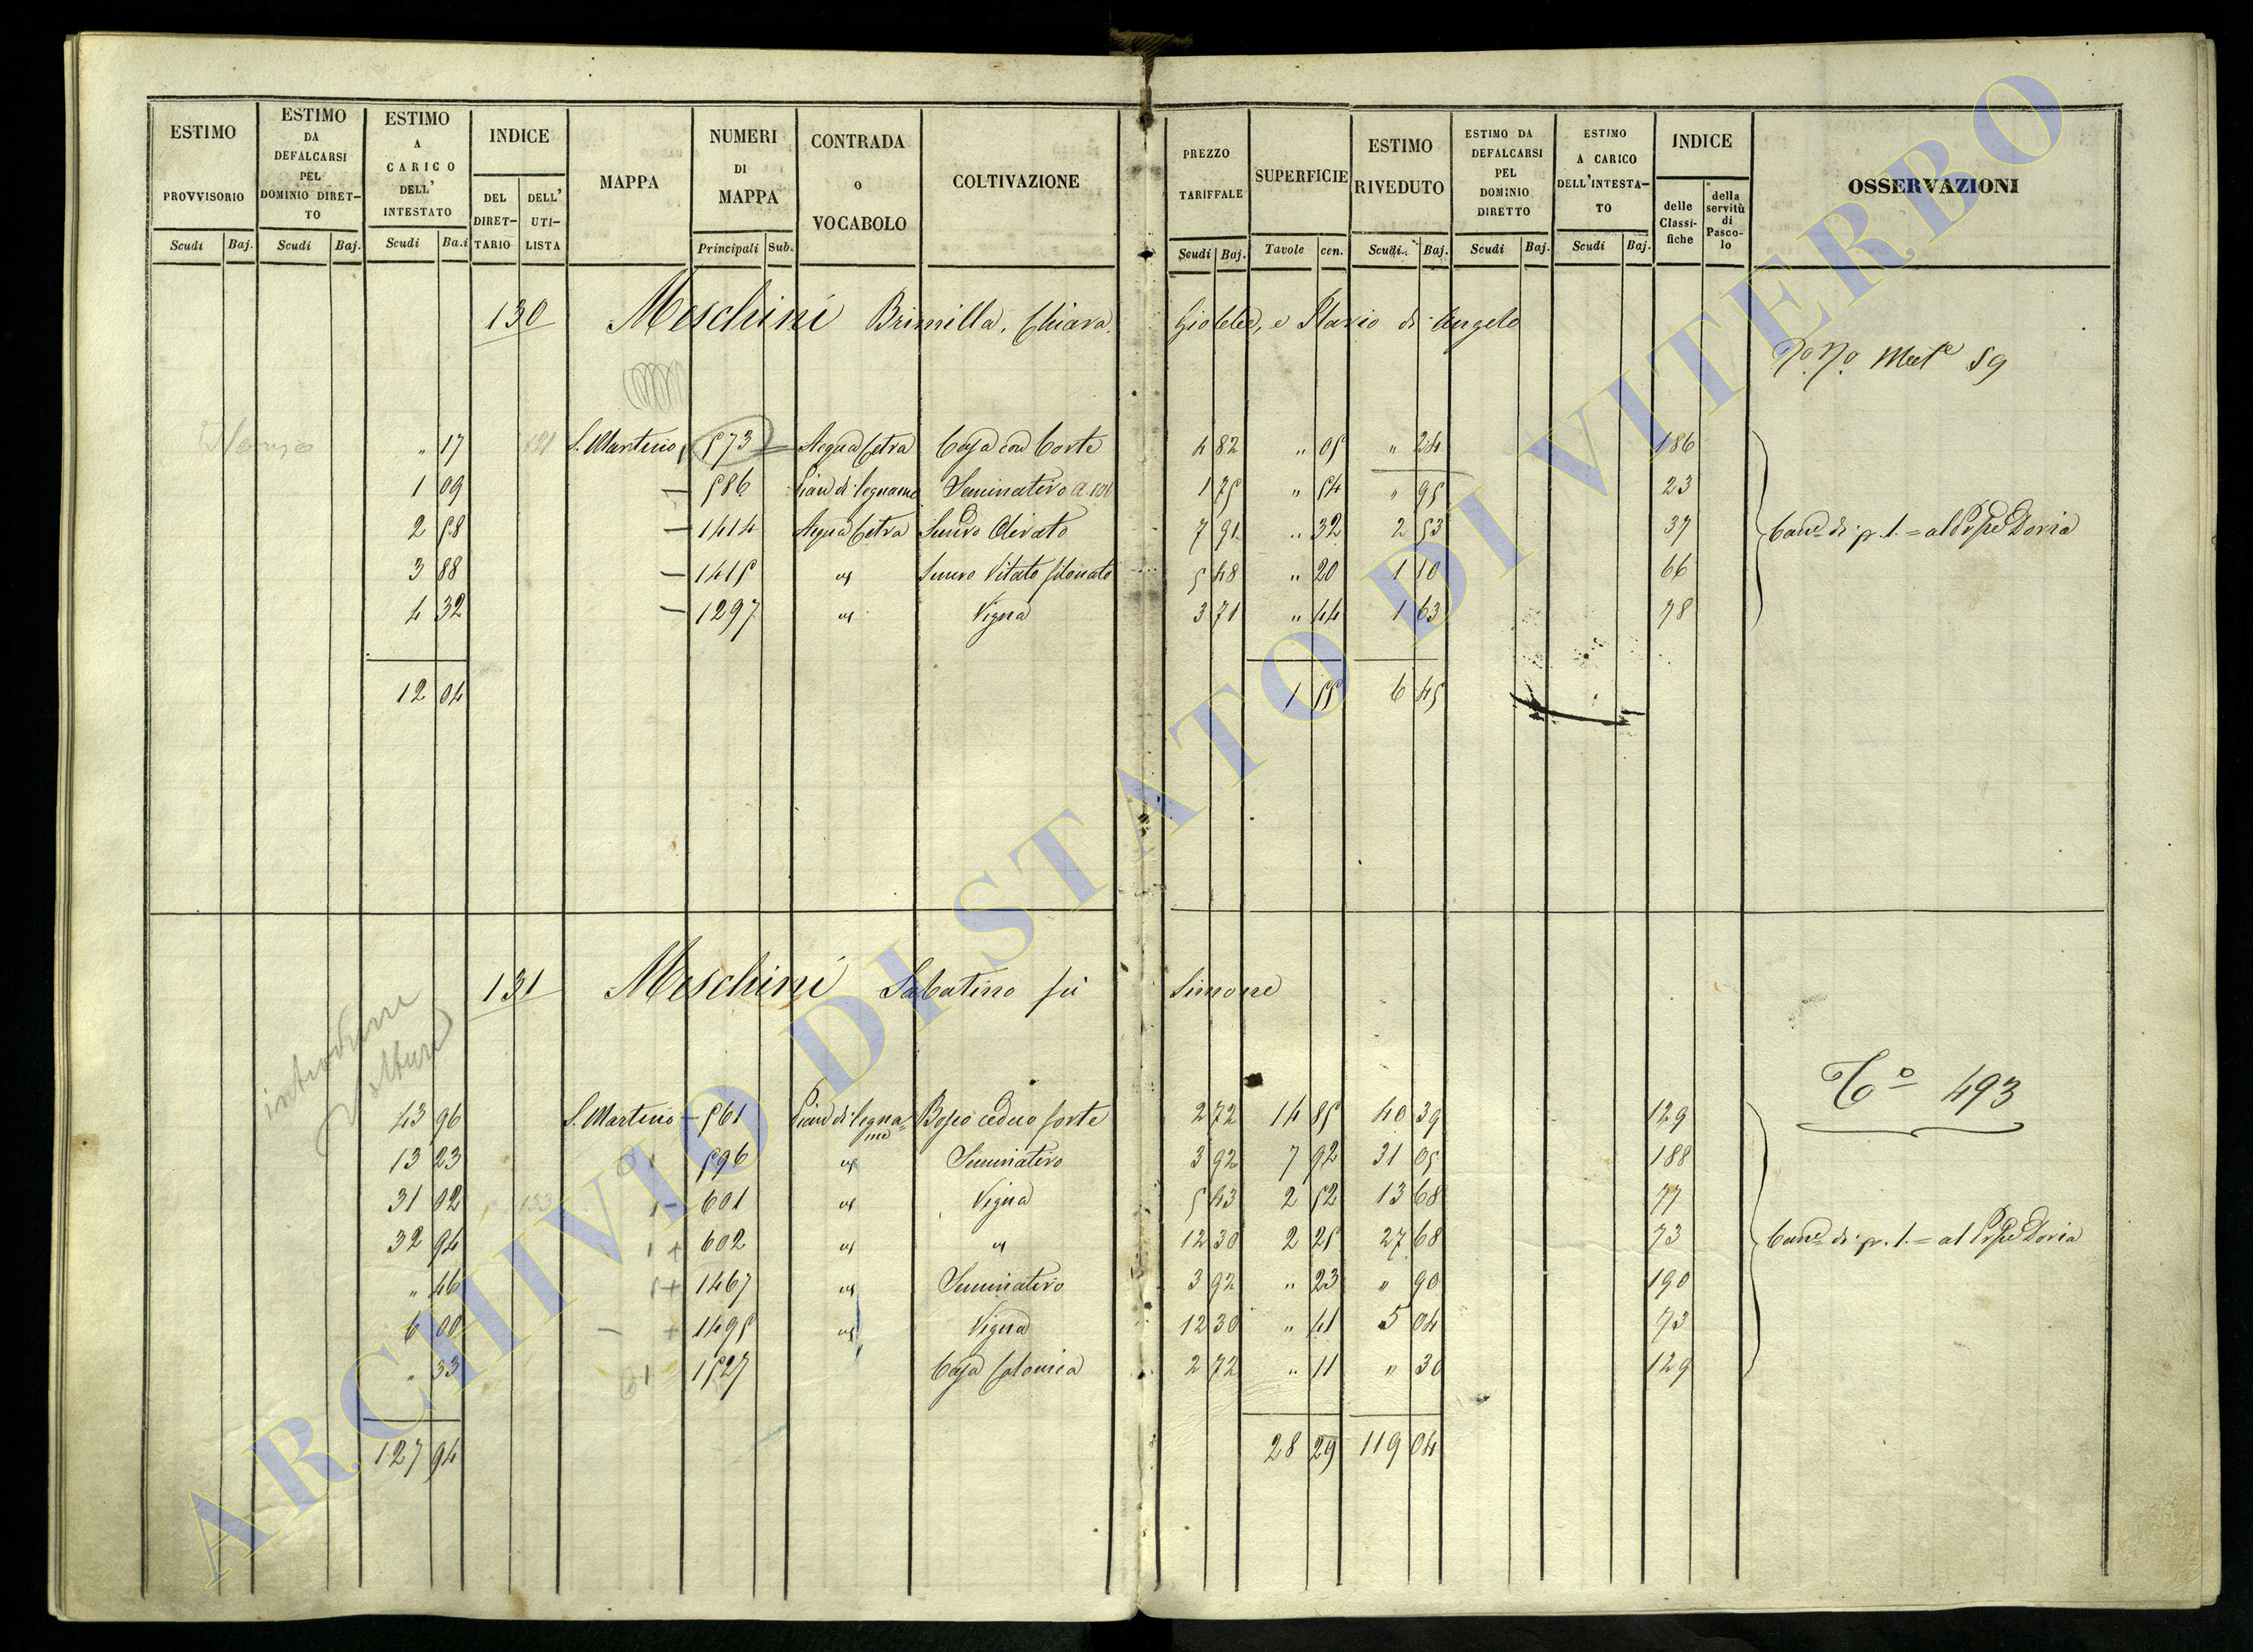 ESTIMO PROVVISORIO Scudi Baj.
ESTIMO DA DEFALCARSI PEL DOMINIO DIRET-TO Scudi Baj.
ESTIMO A CARICO DELL' INTESTATO Scudi Ba.i
INDICE DEL DIRET-TARIO DELL' UTI-LISTA
MAPPA
NUMERI DI MAPPA Principali Sub.
CONTRADA o VOCABOLO
COLTIVAZIONE
PREZZO TARIFFALE Scudi Baj.
SUPERFICIE Tavole cen.
ESTIMO RIVEDUTO Scudi. Baj.
ESTIMO DA DEFALCARSI PEL DOMINIO DIRETTO Scudi Baj.
ESTIMO A CARICO DELL'INTESTA-TO Scudi Baj.
INDICE delle Classi-fiche della servitù di Pasco-lo
OSSERVAZIONI
130 Meschini Brimilla, Chiara, e Flavio di Angelo
59
" 17 S. Martino 573 Acqua Cetra Casa con Corte 4 82 " 05 " 24 186
1 09 — 586 Pian di legname Seminativo 1 75 " 54 " 95 23
2 58 — 1414 Acqua Cetra Semvo Olivato 7 91 " 32 2 53 37 di pr. 1. = al Doria
3 88 — 1415 Semvo Vitato 5 48 " 20 1 10 66
4 32 — 1297 Vigna 3 71 " 44 1 63 78
12 04 1 55 6 45
131 Meschini Sabatino fu Simone
introdurre
volture
493
43 96 S. Martino 561 Pian di legna=me Bosco ceduo forte 2 72 14 85 40 39 129
13 23 596 Seminativo 3 92 7 92 31 05 188
31 02 601 Vigna 5 43 2 52 13 68 77
32 94 + 602 12 30 2 25 27 68 73 di pr. 1. = al Doria
" 46 + 1467 Seminativo 3 92 " 23 " 90 190
6 00 — + 1495 Vigna 12 30 " 41 5 04 73
" 33 1527 Casa Colonica 2 72 " 11 " 30 129
127 94 28 29 119 04
ARCHIVIO DI STATO DI VITERBO